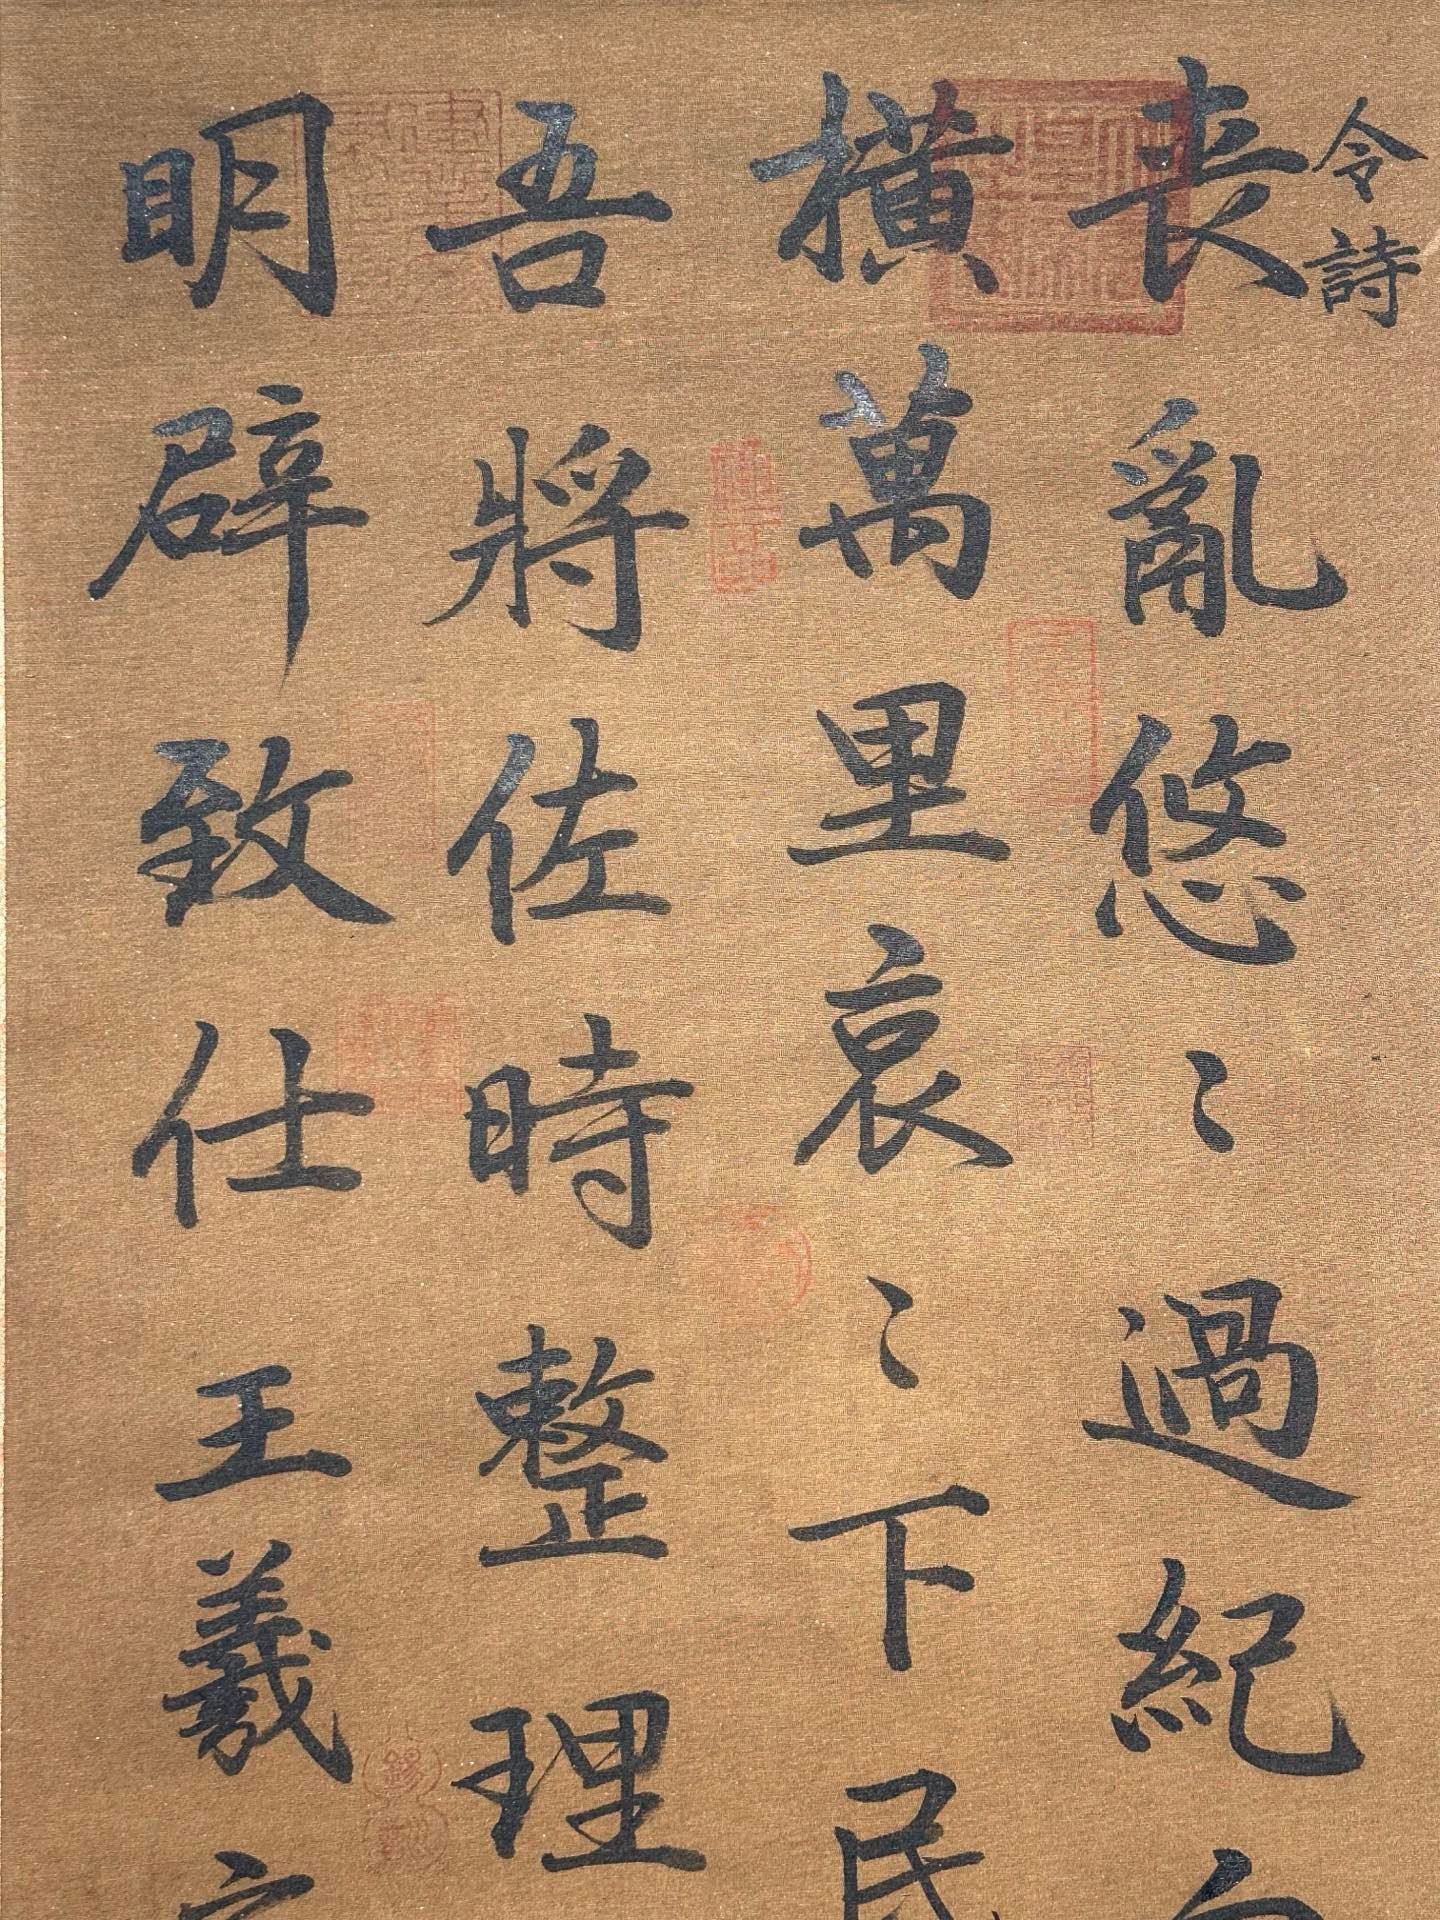 令詩
喪亂悠〻過紀
橫萬里哀〻下民
吾將佐時整理
明辟致仕王羲